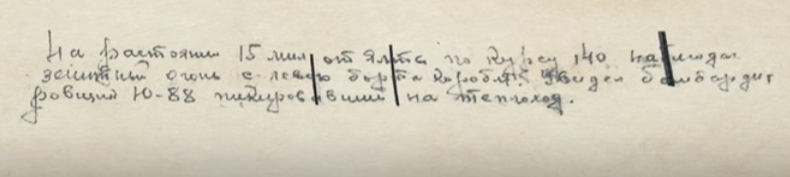 На растоянии 15 мил от Ялты по курсу 140 наблюдал
зенитный огонь с левого борта корабля. Увидел бомбардир
ровщик Ю-88 пикировавший на теплоход.